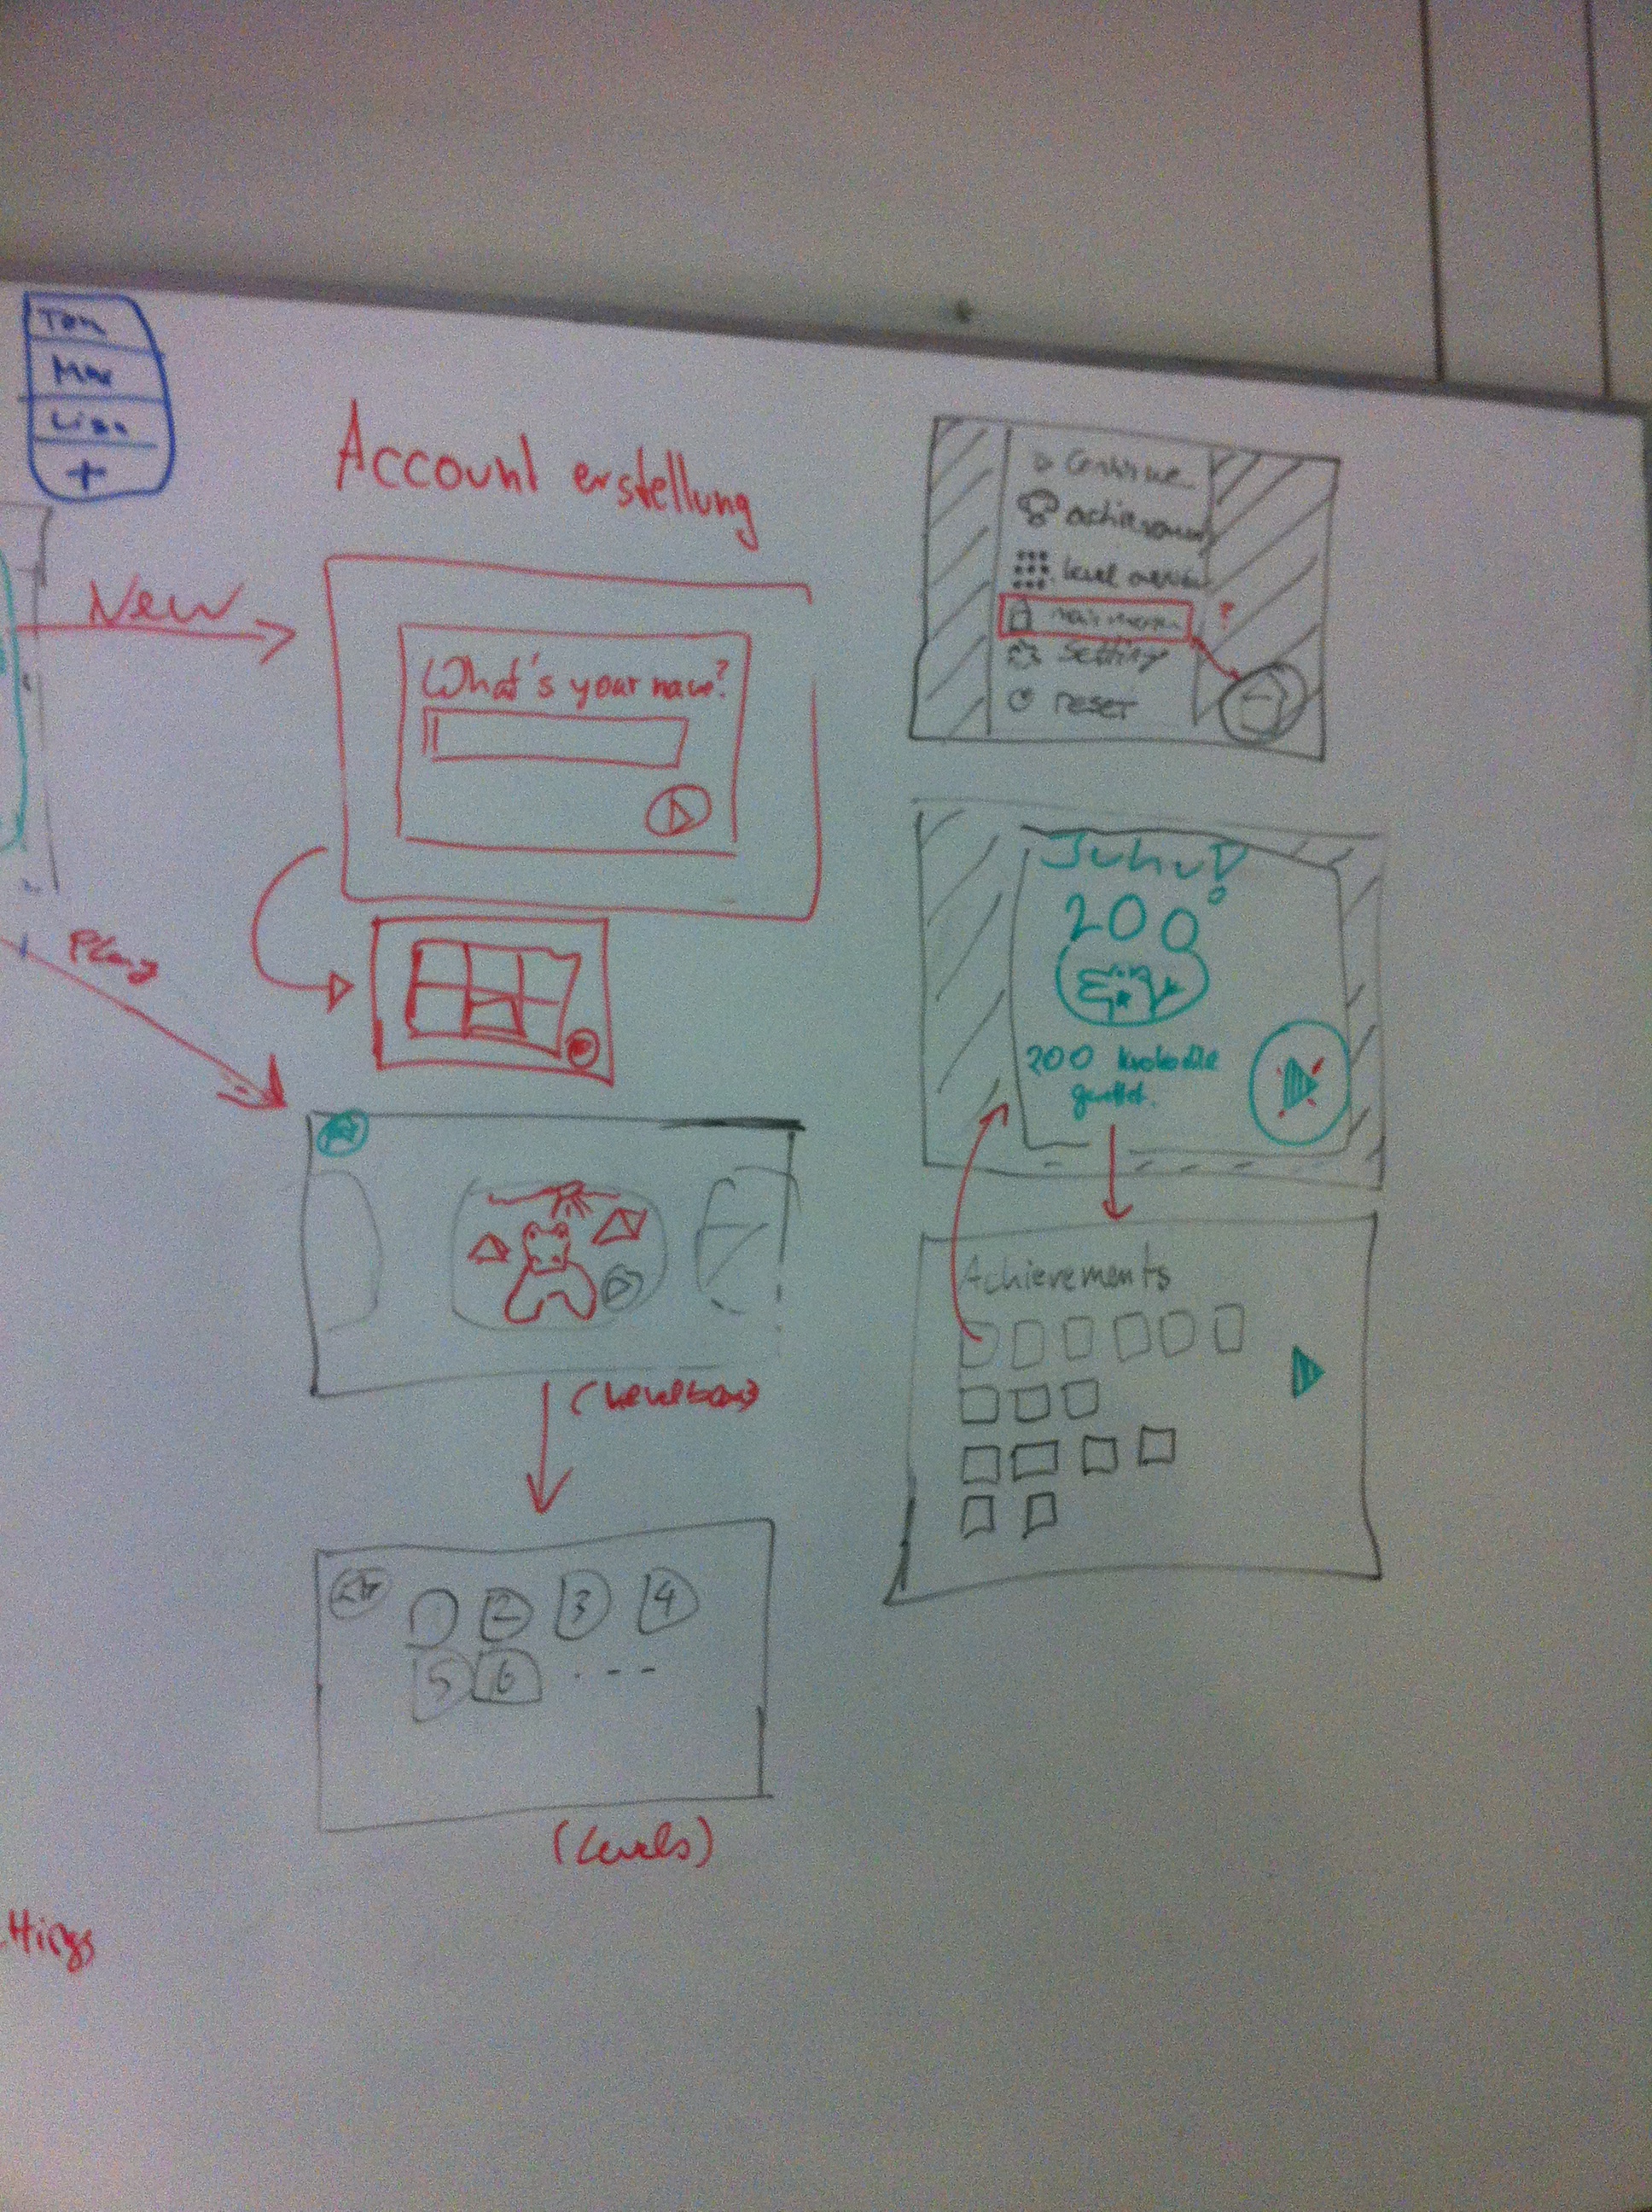 Tom
Max
Lisa
+
Account erstellung
New
What's your name?
Play
(Levelbox)
1 2 3 4
5 6 . - - -
(Levels)
ttings
Continue
achievements
level
main menu ?
Setting
reset
Juhu!
200
200 Krokodile
gerettet.
Achievements